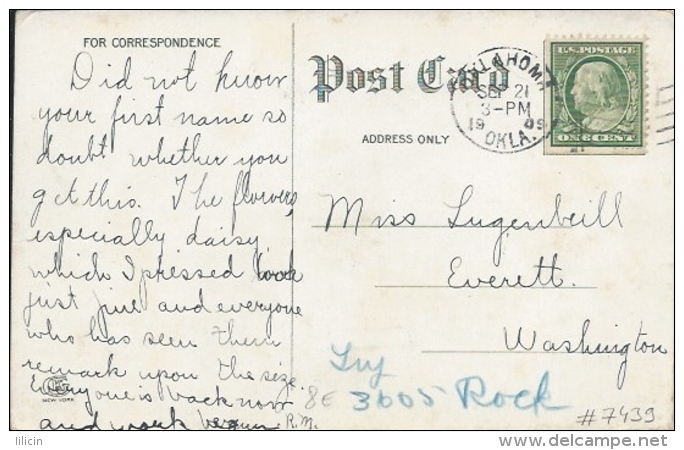 FOR CORRESPONDENCE
Did not know
your first name so
doubt whether you
get this. The flowers,
especially daisy,
which I pressed look
just fine and everyone
who has seen them
remark upon the size.
Everyone is back now
and work begun. R.M.
NEW YORK
Post Card
ADDRESS ONLY
OKLAHOMA
SEP 21
3-PM
1909
OKLA.
U.S. POSTAGE
ONE CENT
Miss Lugenbeill
Everett.
Washington
Try
8E 3605 Rock
#7439
lilicin
delcampe.net